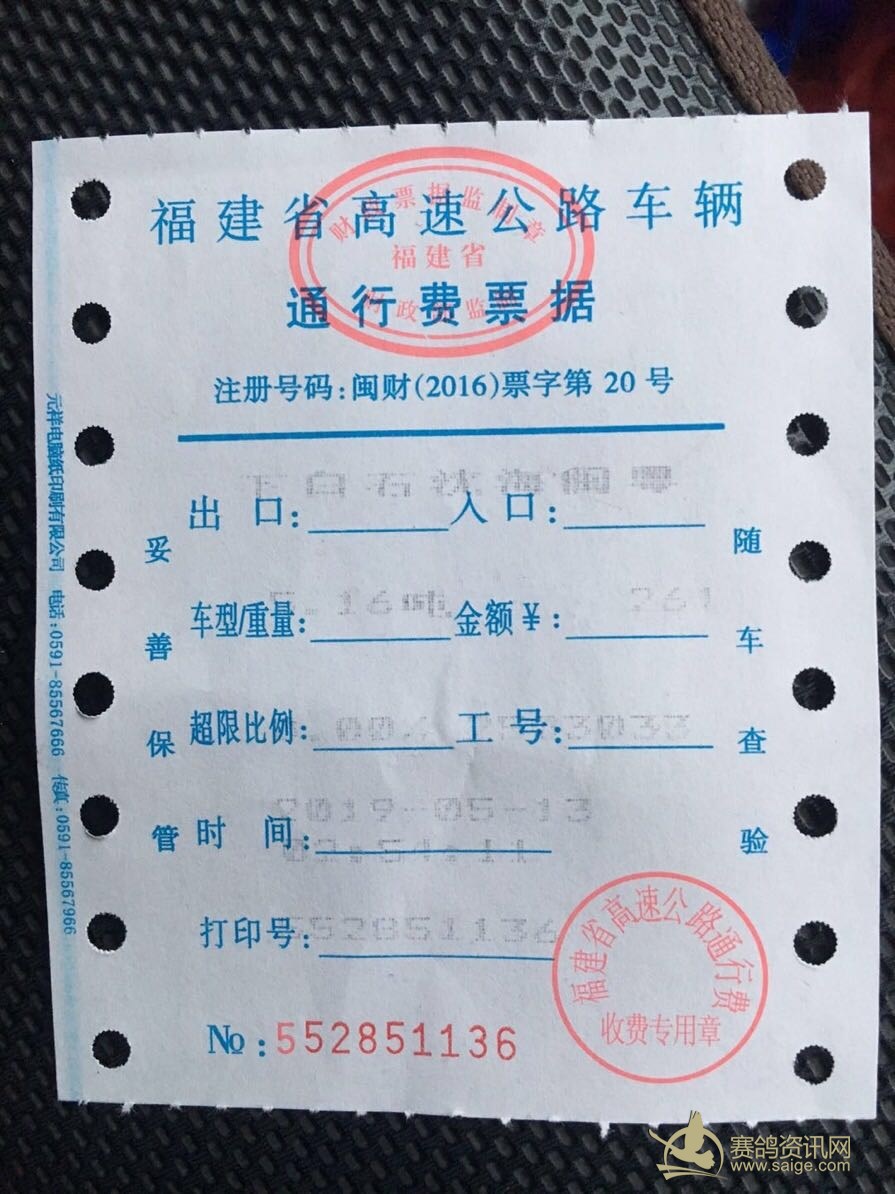 福建省高速公路车辆
通行费票据
财政票据监制章
福建省
注册号码：闽财（2016）票字第 20 号
出口： 入口：
车型/重量： 金额￥：
16吨 761
超限比例： 工号：
.00% 3033
时间：
2019-05-13
打印号：
552851136
№：552851136
妥善保管
随车查验
元祥电脑纸印刷有限公司 电话：0591-85567666 传真：0591-85567966
福建省高速公路通行费
收费专用章
赛鸽资讯网
www.saige.com